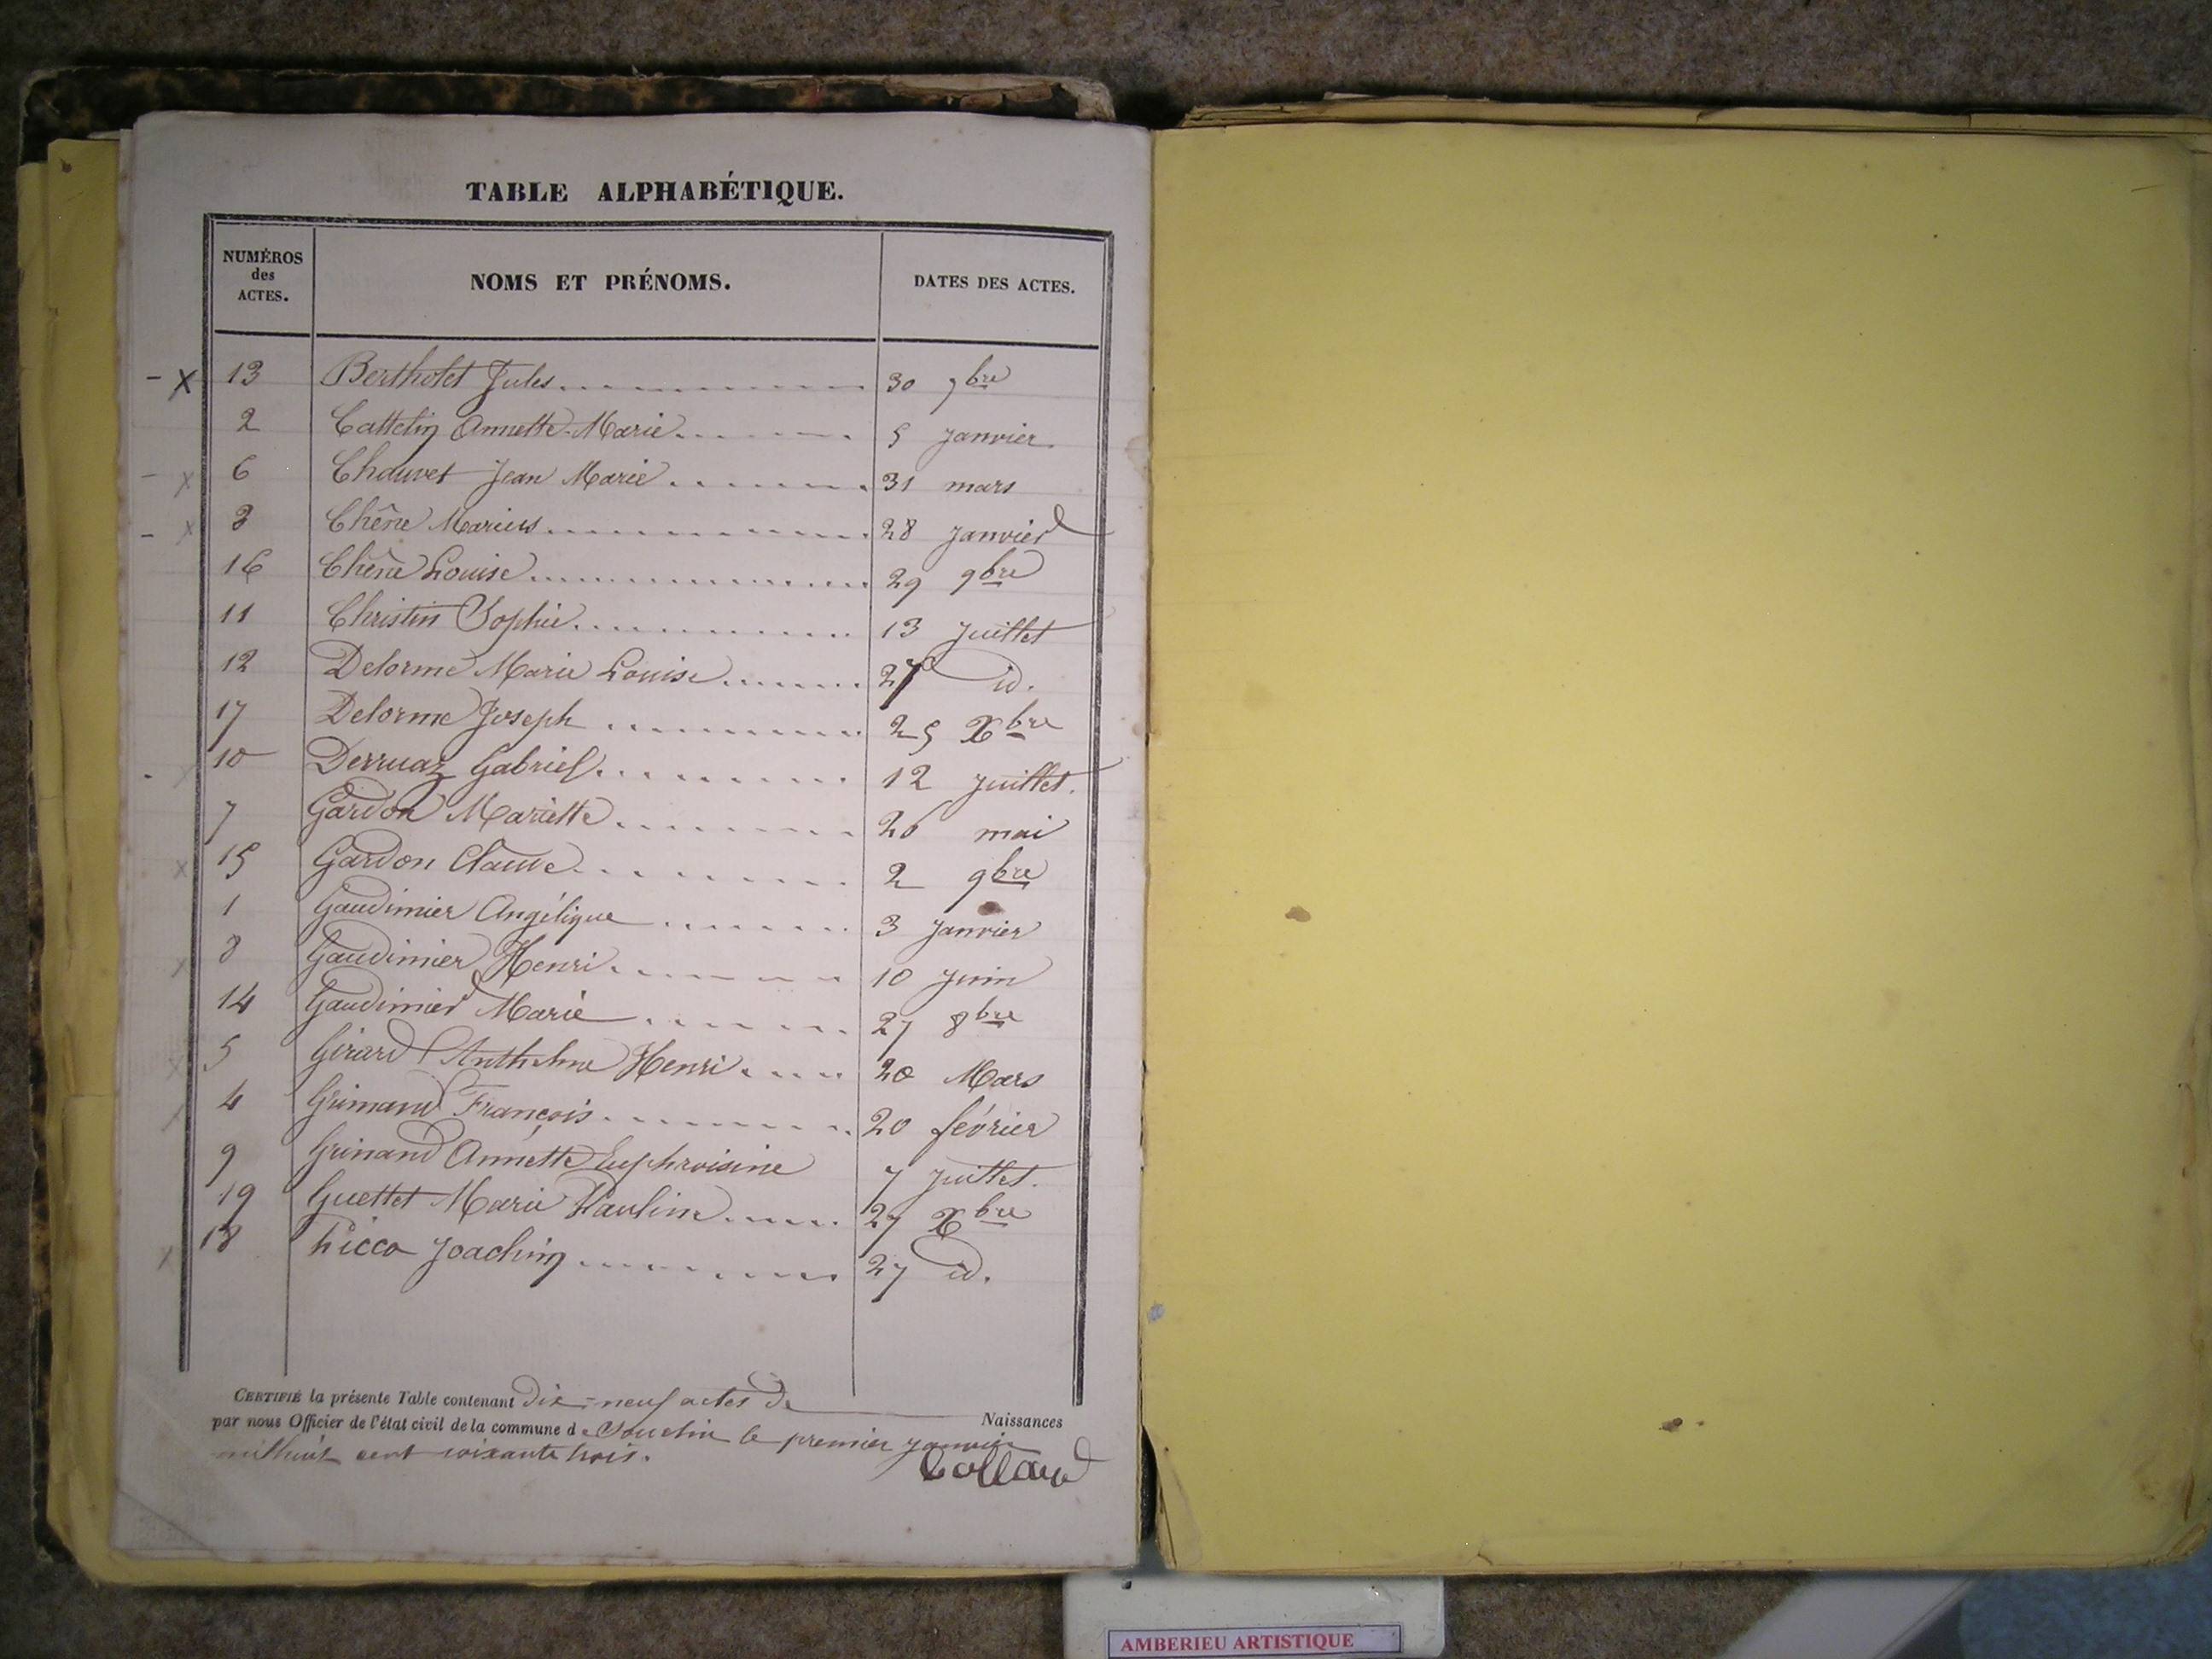 TABLE ALPHABÉTIQUE.
NUMÉROS
des
ACTES.
NOMS ET PRÉNOMS.
DATES DES ACTES.
13 Bertholet Jules 30 7bre
2 Cattelin Annette-Marie 5 janvier
6 Chauvet Jean Marie 31 mars
3 Chêne Marius 28 janvier
16 Chêne Louise 29 9bre
11 Christin Sophie 13 juillet
12 Delorme Marie Louise 27 id.
17 Delorme Joseph 25 Xbre
10 Derruaz Gabriel 12 juillet.
7 Gardon Mariette 26 mai
15 Gardon Claude 2 9bre
1 Gaudimier Angélique 3 janvier
8 Gaudimier Henri 10 juin
14 Gaudimier Marie 27 8bre
5 Girard Anthelme Henri 20 Mars
4 Grimand François 20 février
9 Grinand Annette Euphroisine 7 juillet.
19 Guettet Marie Pauline 27 Xbre
18 Picco Joachim 27 id.
CERTIFIÉ la présente Table contenant dix-neuf actes de
Naissances
par nous Officier de l'état civil de la commune de Souclin le premier janvier
mil huit cent soixante trois.
Colland
AMBERIEU ARTISTIQUE